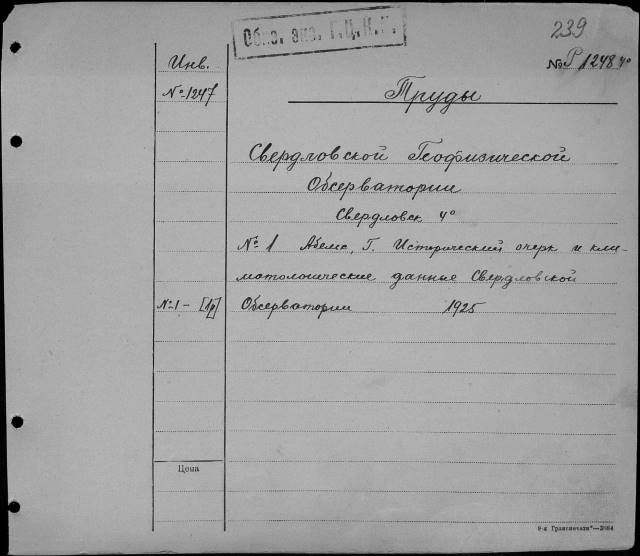 Обяз. экз. Г.Ц.К.П.
239
Инв.
№ P 1248 4°
№ 1247
Труды
Свердловской Геофизической
Обсерватории
Свердловск 4°
№ 1 Абельс, Г. Исторический очерк и кли-
матологические данные Свердловской
№ 1 – [1р] Обсерватории 1925
Цена